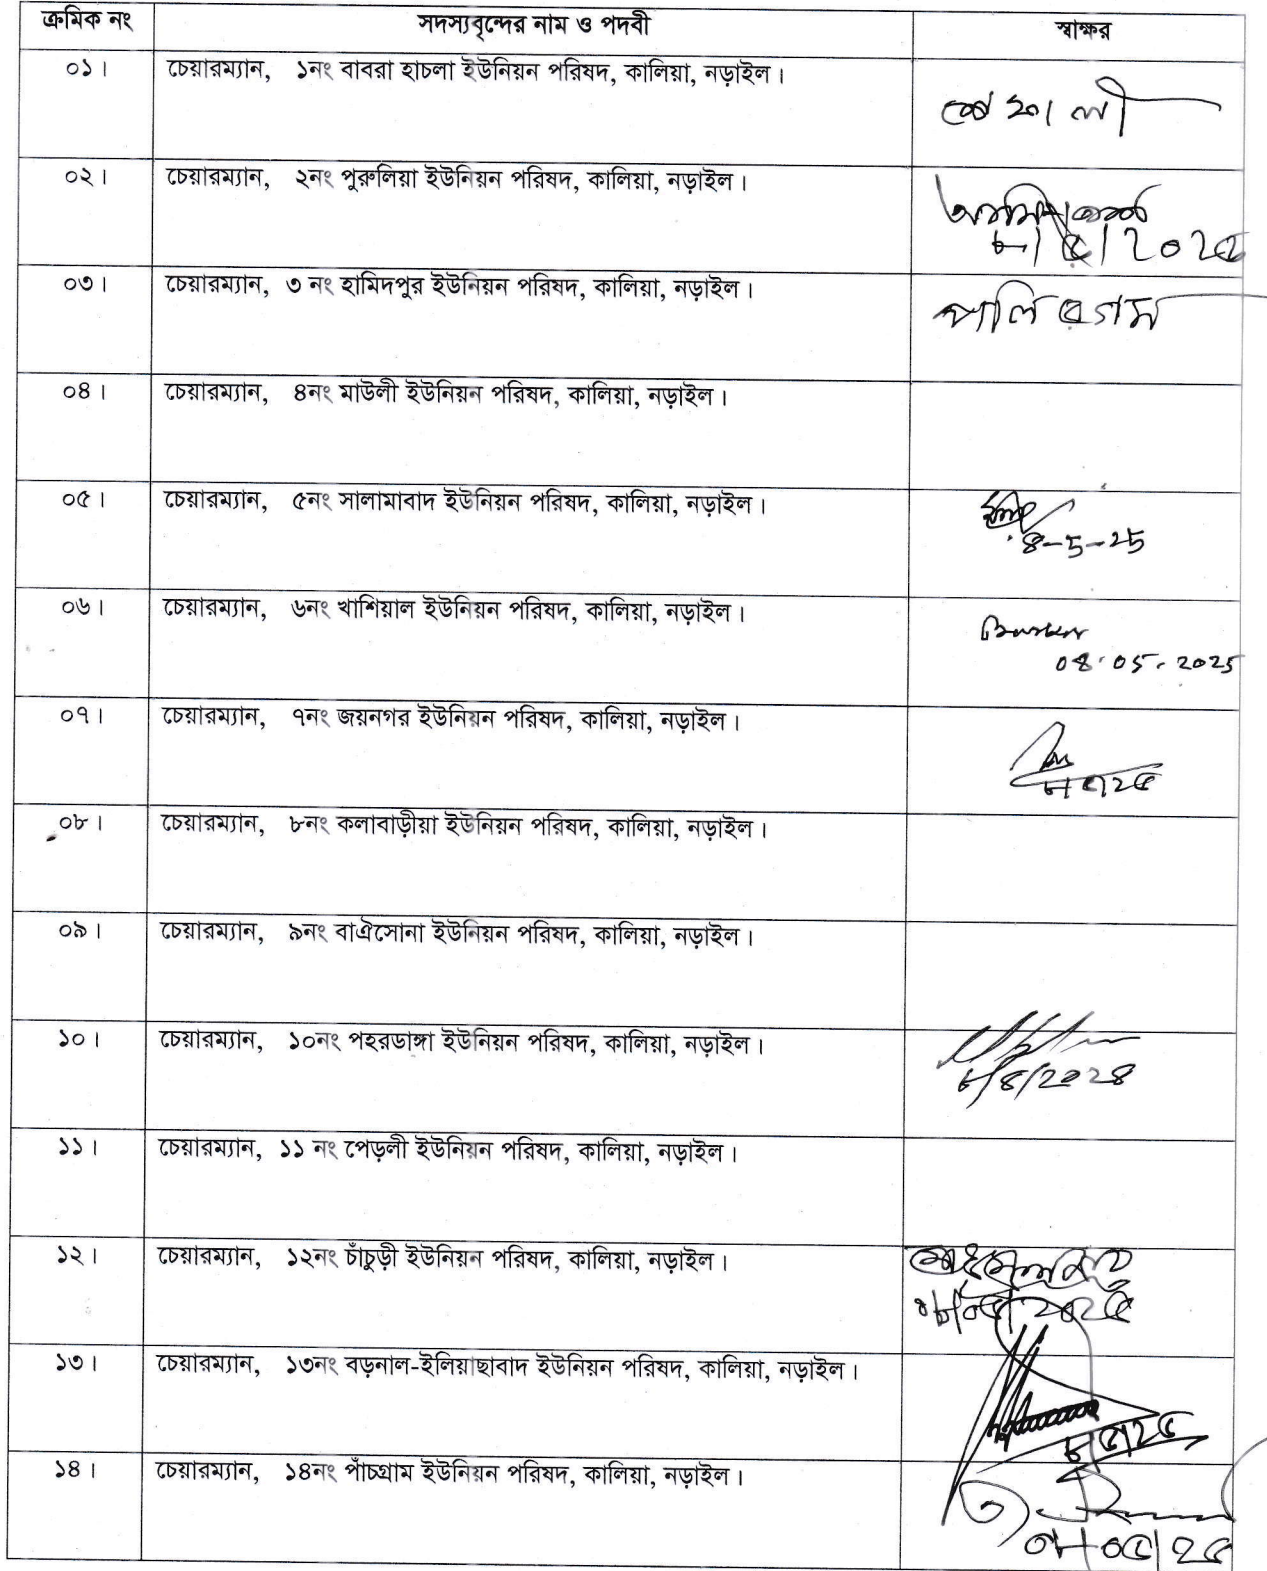 ক্রমিক নং সদস্যবৃন্দের নাম ও পদবী স্বাক্ষর
০১। চেয়ারম্যান, ১নং বাবরা হাচলা ইউনিয়ন পরিষদ, কালিয়া, নড়াইল।
০২। চেয়ারম্যান, ২নং পুরুলিয়া ইউনিয়ন পরিষদ, কালিয়া, নড়াইল।
৮।৫।2025
০৩। চেয়ারম্যান, ৩ নং হামিদপুর ইউনিয়ন পরিষদ, কালিয়া, নড়াইল।
পলি বেগম
০৪। চেয়ারম্যান, ৪নং মাউলী ইউনিয়ন পরিষদ, কালিয়া, নড়াইল।
০৫। চেয়ারম্যান, ৫নং সালামাবাদ ইউনিয়ন পরিষদ, কালিয়া, নড়াইল।
8-5-25
০৬। চেয়ারম্যান, ৬নং খাশিয়াল ইউনিয়ন পরিষদ, কালিয়া, নড়াইল।
08.05.2025
০৭। চেয়ারম্যান, ৭নং জয়নগর ইউনিয়ন পরিষদ, কালিয়া, নড়াইল।
০৮। চেয়ারম্যান, ৮নং কলাবাড়ীয়া ইউনিয়ন পরিষদ, কালিয়া, নড়াইল।
০৯। চেয়ারম্যান, ৯নং বাঐসোনা ইউনিয়ন পরিষদ, কালিয়া, নড়াইল।
১০। চেয়ারম্যান, ১০নং পহরডাঙ্গা ইউনিয়ন পরিষদ, কালিয়া, নড়াইল।
১১। চেয়ারম্যান, ১১ নং পেড়লী ইউনিয়ন পরিষদ, কালিয়া, নড়াইল।
১২। চেয়ারম্যান, ১২নং চাঁচুড়ী ইউনিয়ন পরিষদ, কালিয়া, নড়াইল।
০৮/০৫/২০২৫
১৩। চেয়ারম্যান, ১৩নং বড়নাল-ইলিয়াছাবাদ ইউনিয়ন পরিষদ, কালিয়া, নড়াইল।
৮।৫।২৫
১৪। চেয়ারম্যান, ১৪নং পাঁচগ্রাম ইউনিয়ন পরিষদ, কালিয়া, নড়াইল।
০৮।০৫।২৫